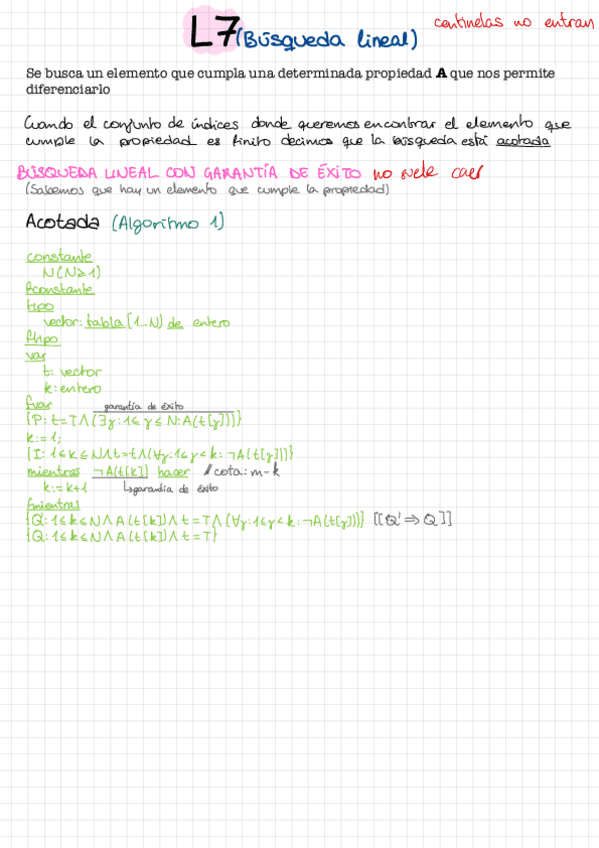 L7 (Búsqueda lineal)
centinelas no entran
Se busca un elemento que cumpla una determinada propiedad A que nos permite
diferenciarlo
Cuando el conjunto de índices donde queremos encontrar el elemento que
cumple la propiedad es finito decimos que la búsqueda está acotada
BÚSQUEDA LINEAL CON GARANTÍA DE ÉXITO no suele caer
(Sabemos que hay un elemento que cumple la propiedad)
Acotada (Algoritmo 1)
constante
N (N≥1)
fconstante
tipo
vector: tabla [1..N) de entero
ftipo
var
t: vector
k: entero
fvar
garantía de éxito
{P: t=T∧(∃y: 1≤y≤N: A(t[y]))}
k:= 1;
{I: 1≤k≤N∧t=t∧(∀y: 1≤y<k: ¬A(t[y]))}
mientras ¬A(t[k]) hacer // cota: m-k
k:= k+1 ↳garantía de éxito
fmientras
{Q': 1≤k≤N∧A(t[k])∧t=T∧(∀y: 1≤y<k: ¬A(t[y]))} [[Q'⇒Q]]
{Q: 1≤k≤N∧A(t[k])∧t=T}